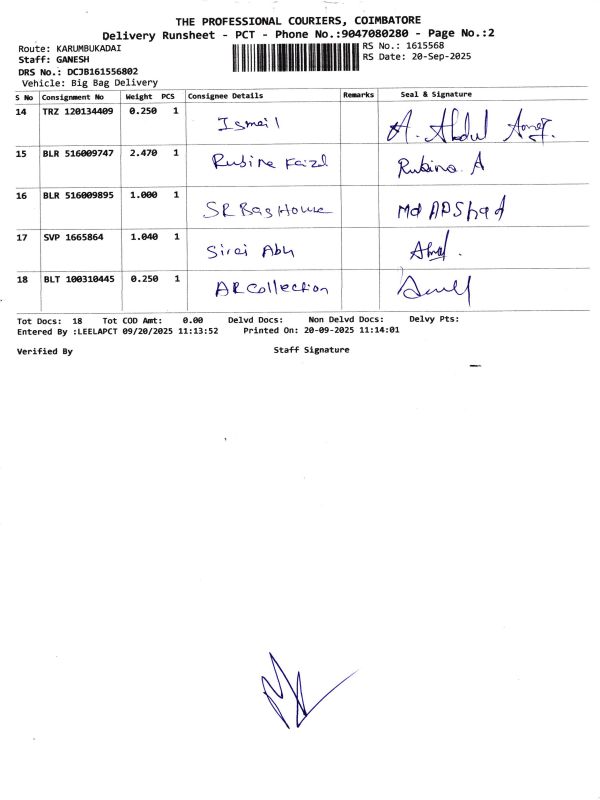 THE PROFESSIONAL COURIERS, COIMBATORE
Delivery Runsheet - PCT - Phone No.:9047080280 - Page No.:2
Route: KARUMBUKADAI
RS No.: 1615568
Staff: GANESH
RS Date: 20-Sep-2025
DRS No.: DCJB161556802
Vehicle: Big Bag Delivery
S No Consignment No Weight PCS Consignee Details Remarks Seal & Signature
14 TRZ 120134409 0.250 1 Ismail A. Abdul
15 BLR 516009747 2.470 1 Rubina Faizal Rubina A
16 BLR 516009895 1.000 1 SR Bag House Md APShad
17 SVP 1665864 1.040 1 Siraj
18 BLT 100310445 0.250 1 AR Collection
Tot Docs: 18 Tot COD Amt: 0.00 Delvd Docs: Non Delvd Docs: Delvy Pts:
Entered By :LEELAPCT 09/20/2025 11:13:52 Printed On: 20-09-2025 11:14:01
Verified By Staff Signature